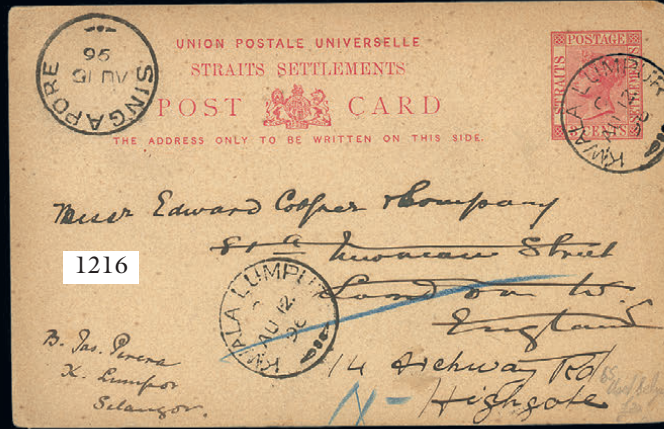 UNION POSTALE UNIVERSELLE
STRAITS SETTLEMENTS
POST CARD
THE ADDRESS ONLY TO BE WRITTEN ON THIS SIDE.
SINGAPORE
AU 15
96
STRAITS POSTAGE
CENTS
KWALA LUMPUR
C
AU 12
96
Messr Edward Cooper & Company
Street
London W.
England
14 Archway Rd
Highgate
1216
KWALA LUMPUR
C
AU 12
96
B. Jas. Perera
K. Lumpor
Selangor.